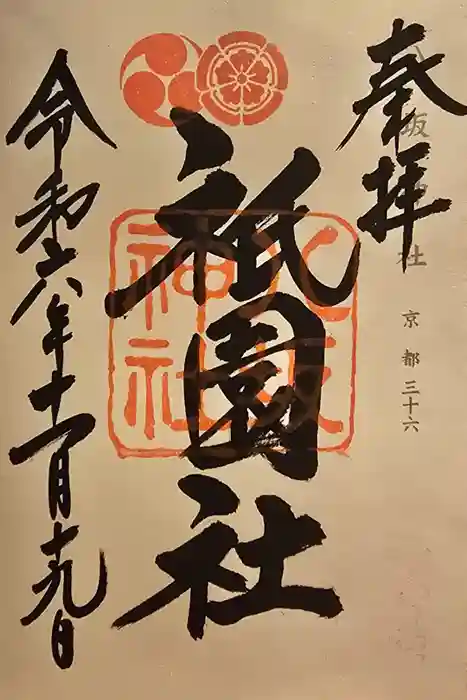 奉拝
八坂神社
京都三十六
祇園社
八坂神社
令和六年十一月十九日